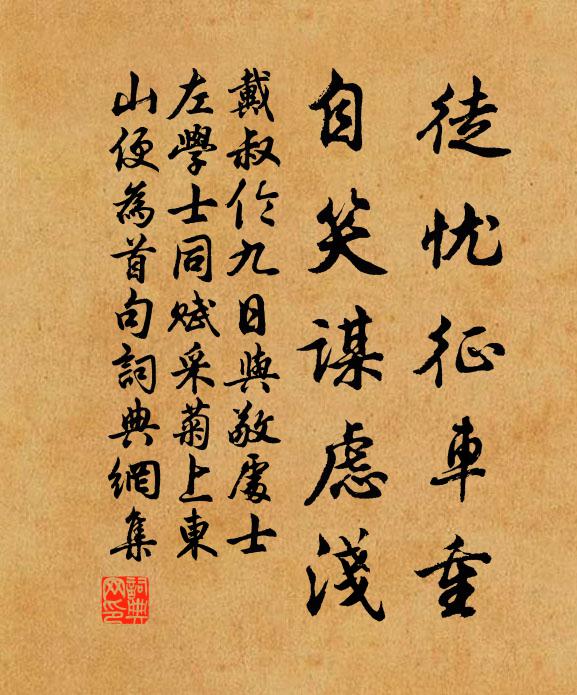 徒忧征車重
自笑谋虑淺
戴叔伦九日與敬處士
左學士同赋采菊上東
山便為首句詞典網集
詞典網印